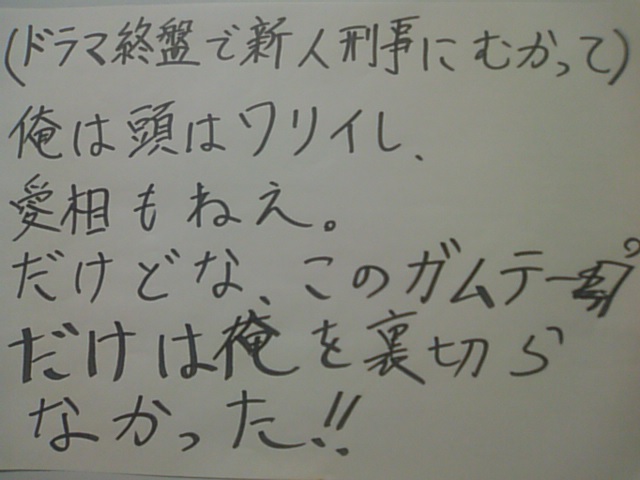 (ドラマ終盤で新人刑事にむかって)
俺は頭はワリイし、
愛相もねえ。
だけどな、このガムテープ
だけは俺を裏切ら
なかった!!